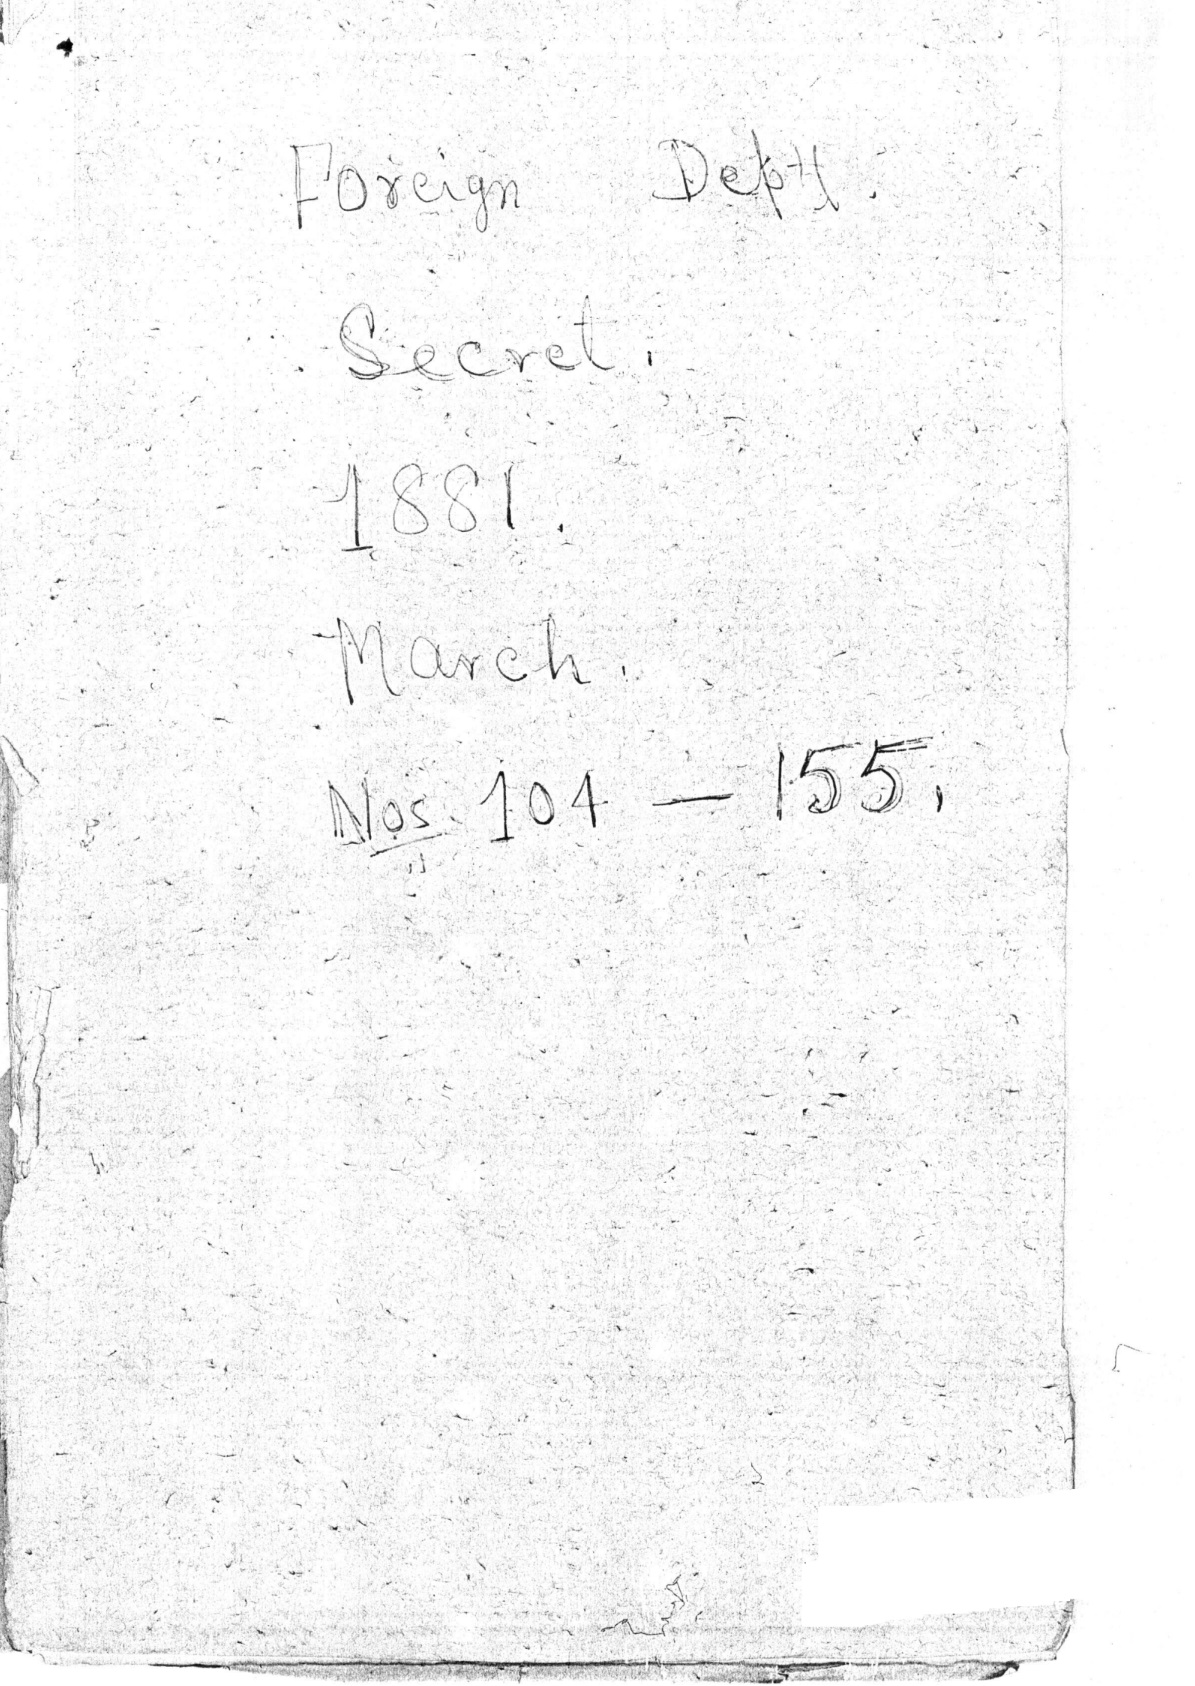 Foreign Deptt.
Secret.
1881.
March.
Nos. 104 — 155.